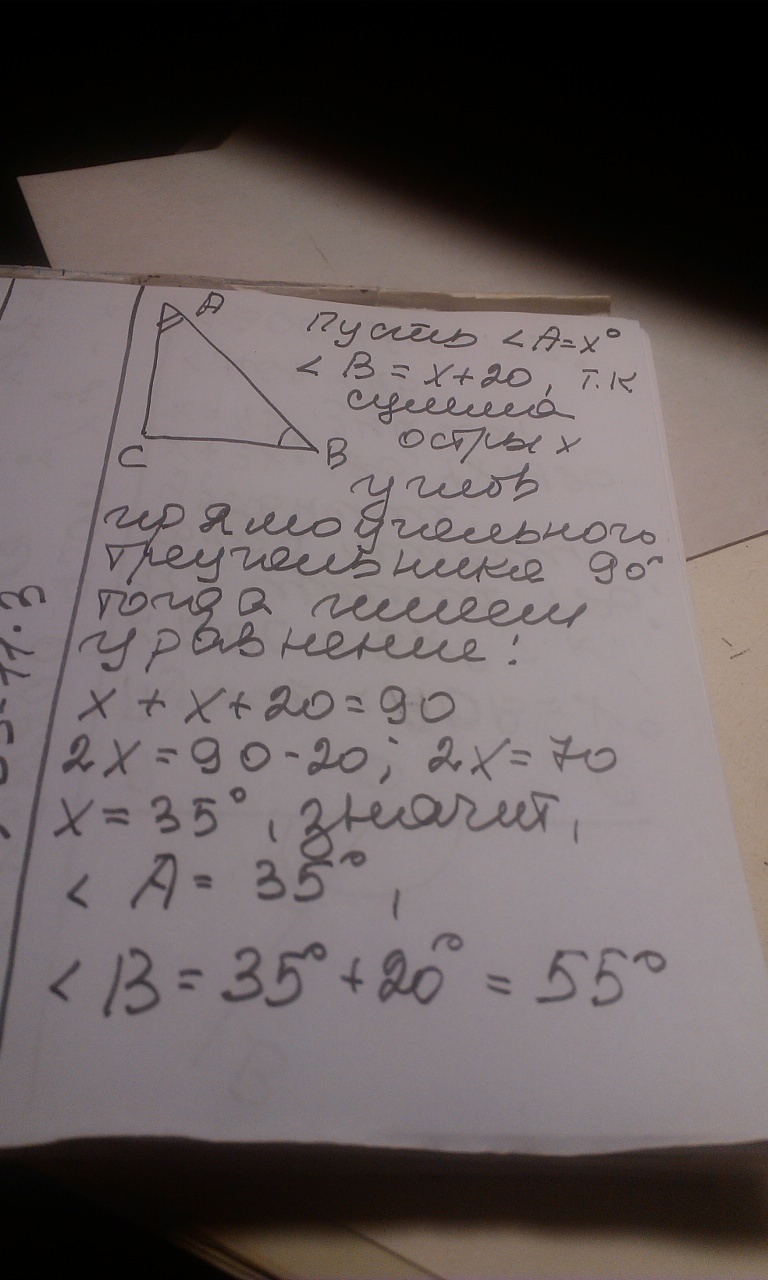 A
C
B
Пусть <A=x°
< B = x+20, т.к
сумма
острых
углов
прямоугольного
треугольника 90°
тогда имеем
уравнение:
x + x+20=90
2x=90-20; 2x=70
x=35°, значит,
< A= 35°,
< B= 35°+20°= 55°